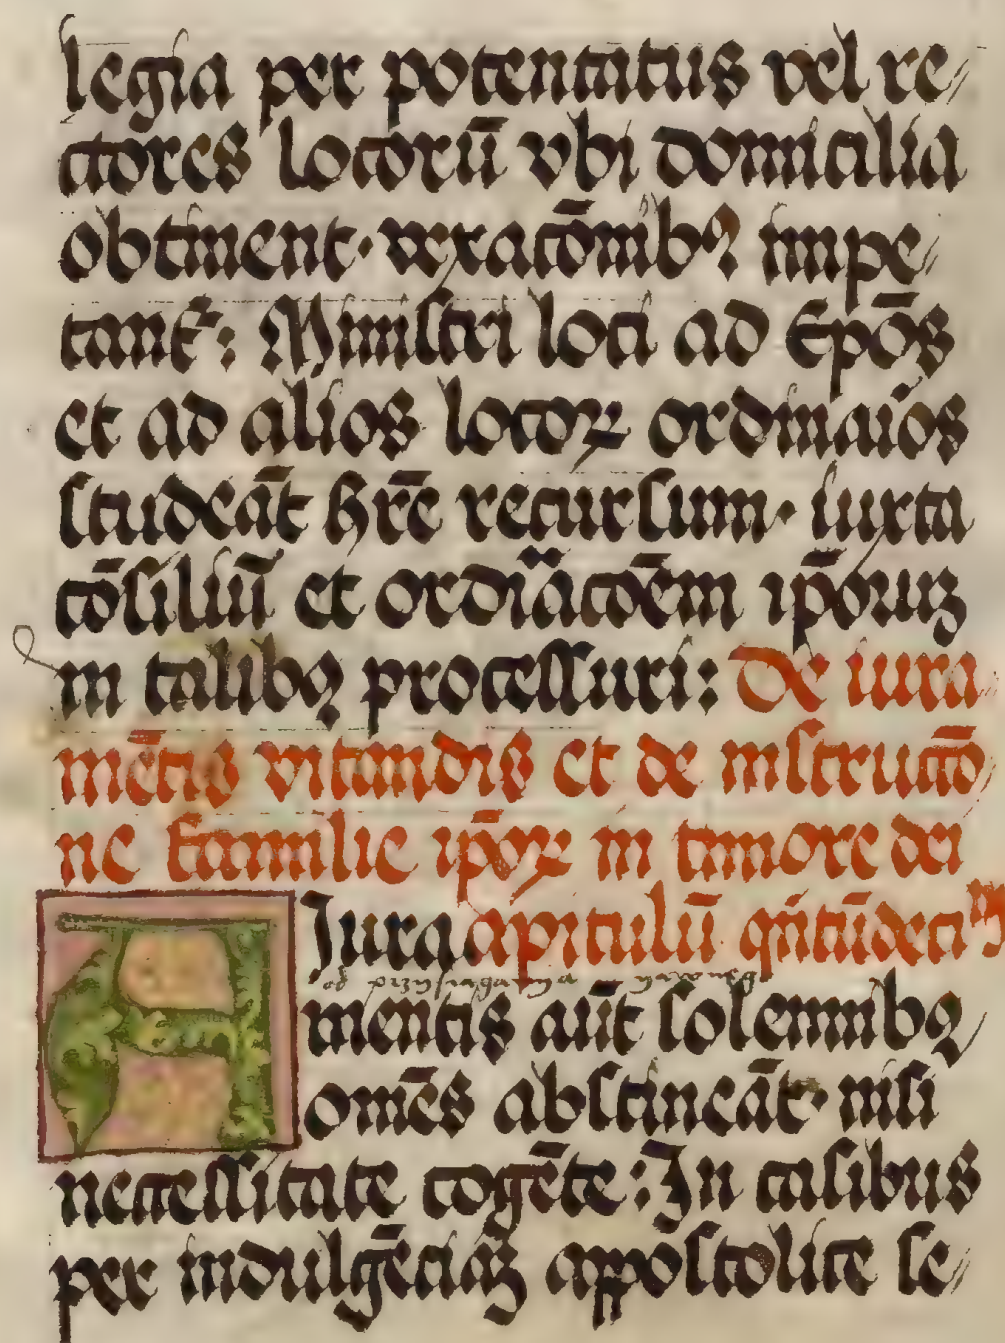 legia per potentatus vel re/
ctores locorū vbi domicilia
obtinent· vexacōnibꝰ impe/
tant᷑: Ministri loci ad Ep̄os
et ad alios locoꝝ ordinaíos
studeāt hr̄e recursum· iuxta
cōsiliū et ordīacōem ip̄oruʒ
in talibꝫ processuri: De iura
mētis vitandis et de instructō
ne familie ip̄oꝝ in timore dei
A Jura apitulū qn̄tūdeci
od przysiaganya
mentis aūt solemnibꝫ
om̄es abstineāt· nisi
necessitate cogēte: In casibus
per indulgēciāʒ apostolice se/